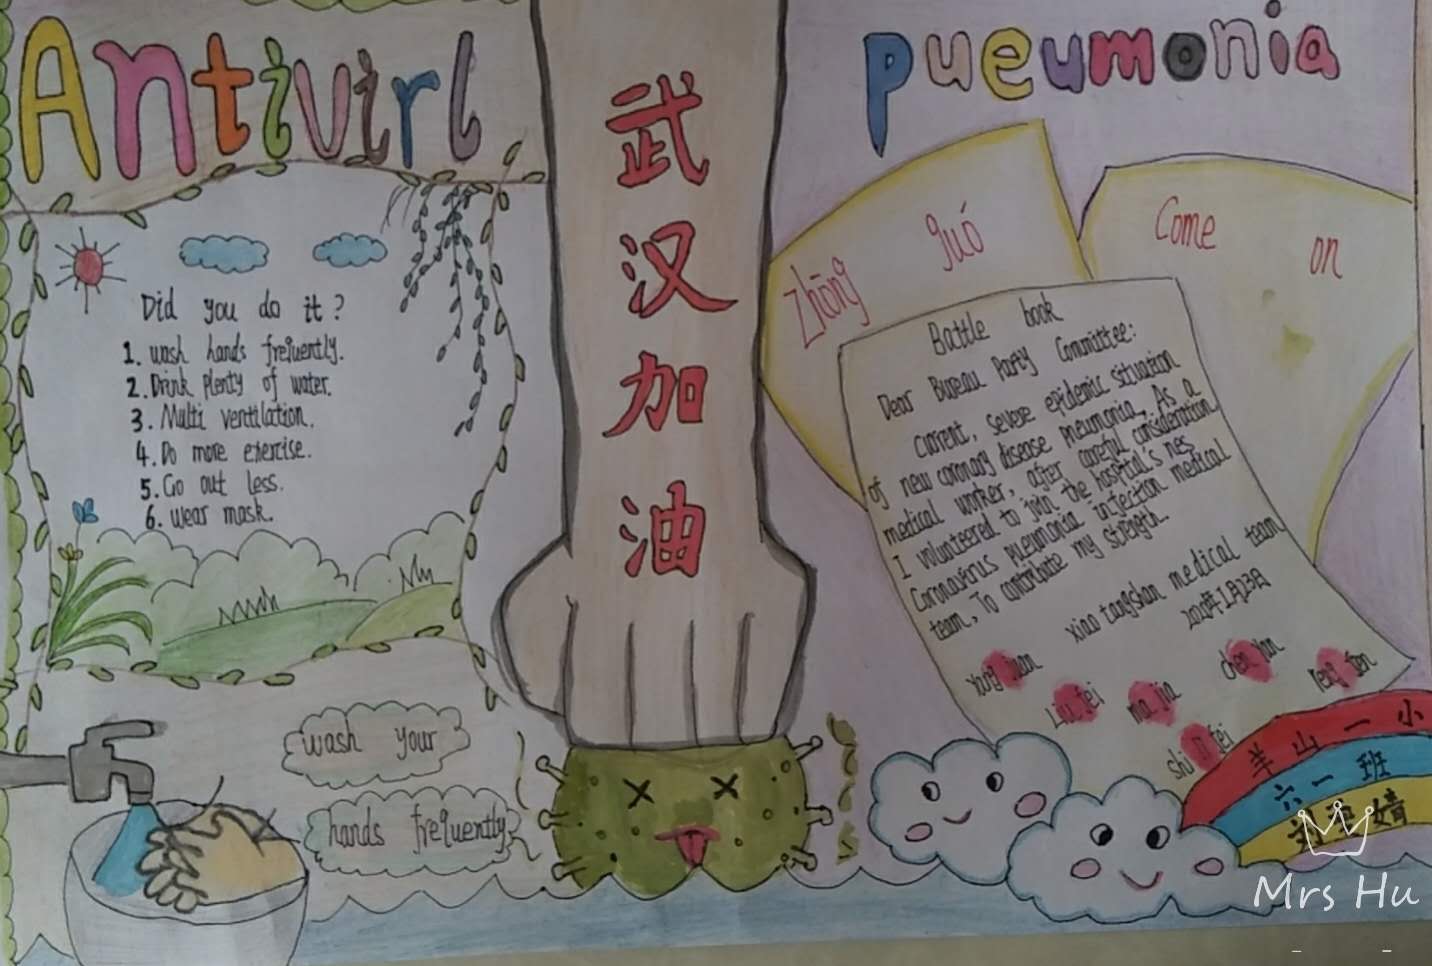 Antivirl
pueumonia
武
汉
加
油
Did you do it?
1. wash hands frequently.
2. Drink plenty of water.
3. Multi ventilation.
4. Do more exercise.
5. Go out less.
6. wear mask.
wash your
hands frequently
Zhōng guó
Come on
Battle book
Dear Bureau Party Committee:
Current, severe epidemic situation
of new coronary disease pneumonia. As a
medical worker, after careful consideration
I volunteered to join the hospital's nes
Coronavirus pneumonia injection medical
team, To contribute my strength.
xiao tangshan medical team
2020年1月23日
Liu fei
ma jia
chen
shi fei
羊山一小
六一班
婧
Mrs Hu